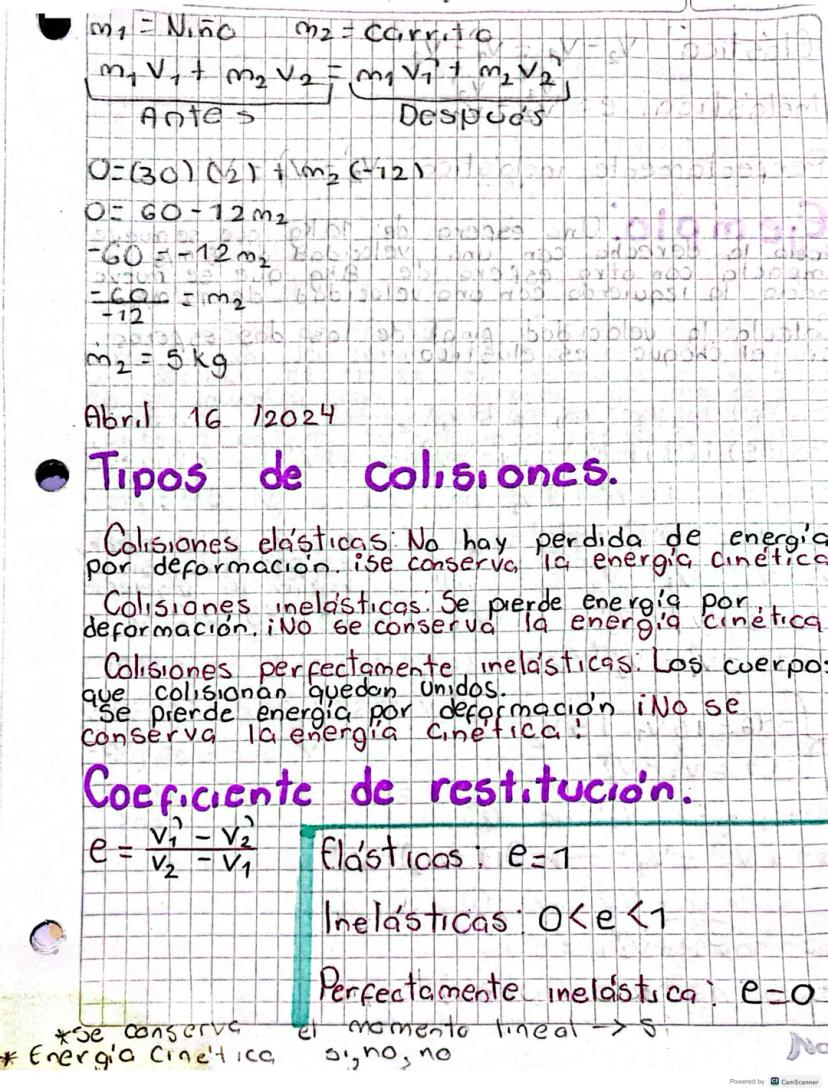 m₁ = Niño m₂ = carrito
m₁ V₁ + m₂ V₂ = m₁ V₁' + m₂ V₂'
Antes Después
0=(30)(2) + m₂ (-12)
0= 60 - 12 m₂
-60 = -12 m₂
-60/-12 = m₂
m₂ = 5 kg
Abril 16 /2024
Tipos de colisiones.
Colisiones elásticas: No hay perdida de energía
por deformación. ¡Se conserva la energía cinética
Colisiones inelásticas: Se pierde energía por
deformación. ¡No se conserva la energía cinética
Colisiones perfectamente inelásticas: Los cuerpos
que colisionan quedan unidos.
Se pierde energía por deformación ¡No se
conserva la energía cinética!
Coeficiente de restitución.
e = V₁' - V₂' / V₂ - V₁
Elásticas: e=1
Inelásticas: 0<e<1
Perfectamente inelástica: e=0
*Se conserva el momento lineal → S.
* Energía Cinética si, no, no
No
Powered by CS CamScanner